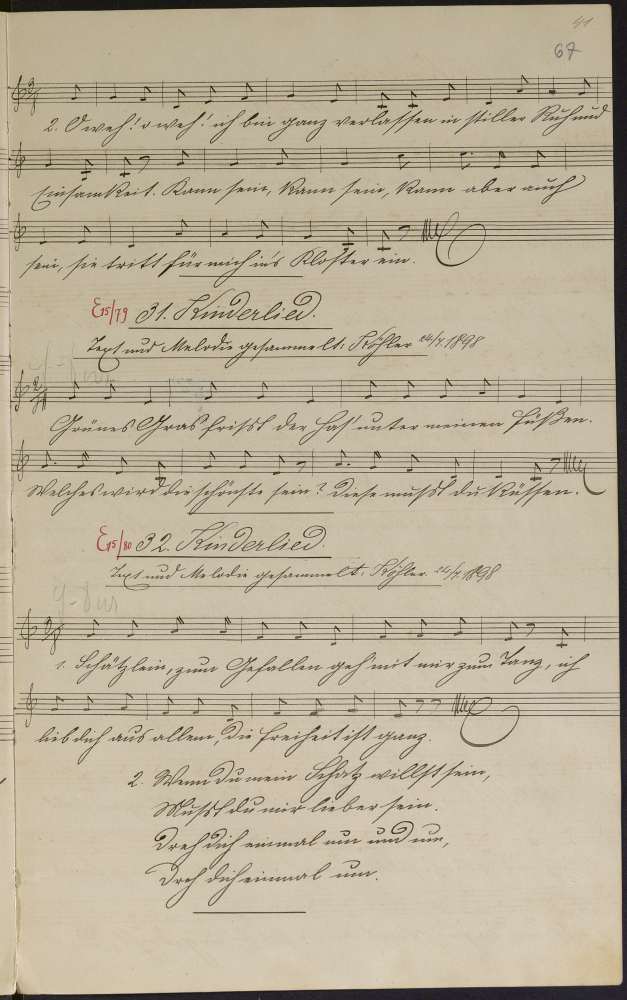 41
67
2. O weh! o weh! ich bin ganz verlassen in stiller Ruh und
Einsamkeit. Kann sein, kann sein, kann aber auch
sein, sie tritt für mich in's Kloster ein.
E15/79 31. Kinderlied.
Text und Melodie gesammelt: Köhler 24/7. 1898
Grünes Gras frisst der Has' unter meinen Füßen.
Welches wird die schönste sein? Diese musst du küssen.
E15/80 32. Kinderlied.
Text und Melodie gesammelt: Köhler. 24/7. 1898
G-Dur
1. Schätzlein, zum Gefallen geh' mit mir zum Tanz, ich
lieb dich aus allem, die Freiheit ist ganz.
2. Wenn du mein Schatz willst sein,
Musst du mir lieber sein.
Dreh dich einmal um und um,
Dreh dich einmal um.